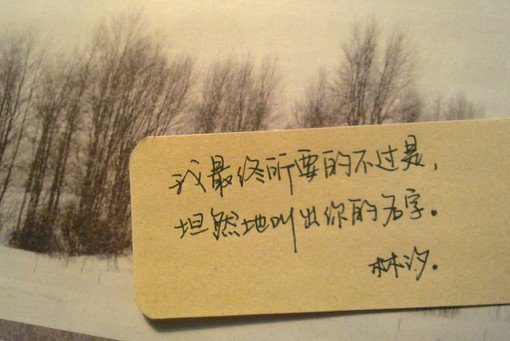 我最终所要的不过是,
坦然地叫出你的名字。
林汐.